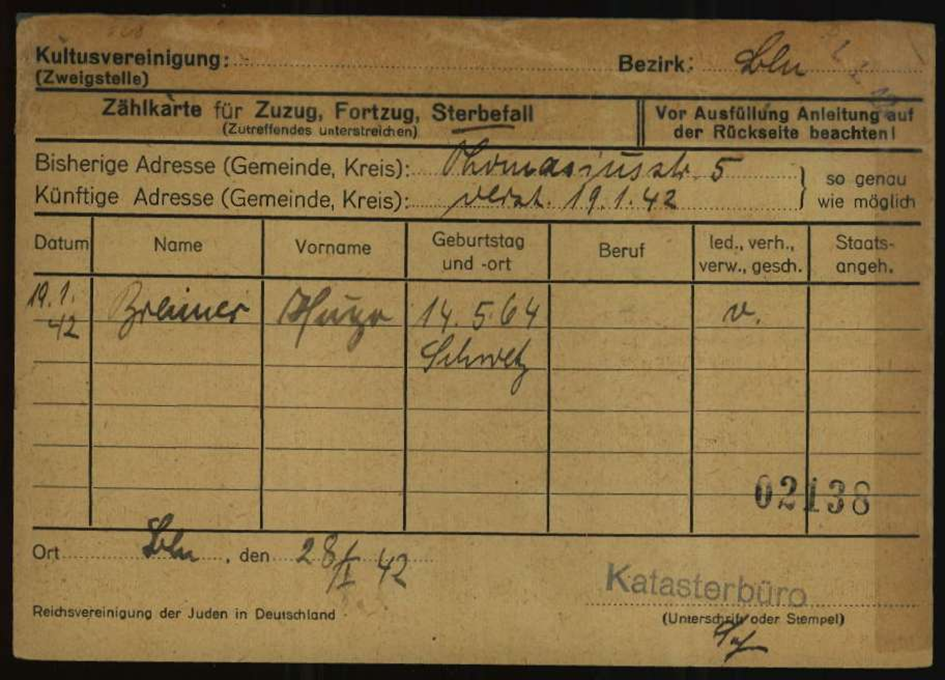 Kultusvereinigung: Bezirk: Bln
(Zweigstelle)
Zählkarte für Zuzug, Fortzug, Sterbefall
(Zutreffendes unterstreichen)
Vor Ausfüllung Anleitung auf
der Rückseite beachten!
Bisherige Adresse (Gemeinde, Kreis): Thomasiusstr. 5
Künftige Adresse (Gemeinde, Kreis): verst. 19.1.42
so genau
wie möglich
Datum Name Vorname Geburtstag und -ort Beruf led., verh., verw., gesch. Staats- angeh.
19.1. Hugo 14.5.64 v.
42 Schwetz
02138
Ort Bln, den 28/I 42
Katasterbüro
Reichsvereinigung der Juden in Deutschland (Unterschrift oder Stempel)